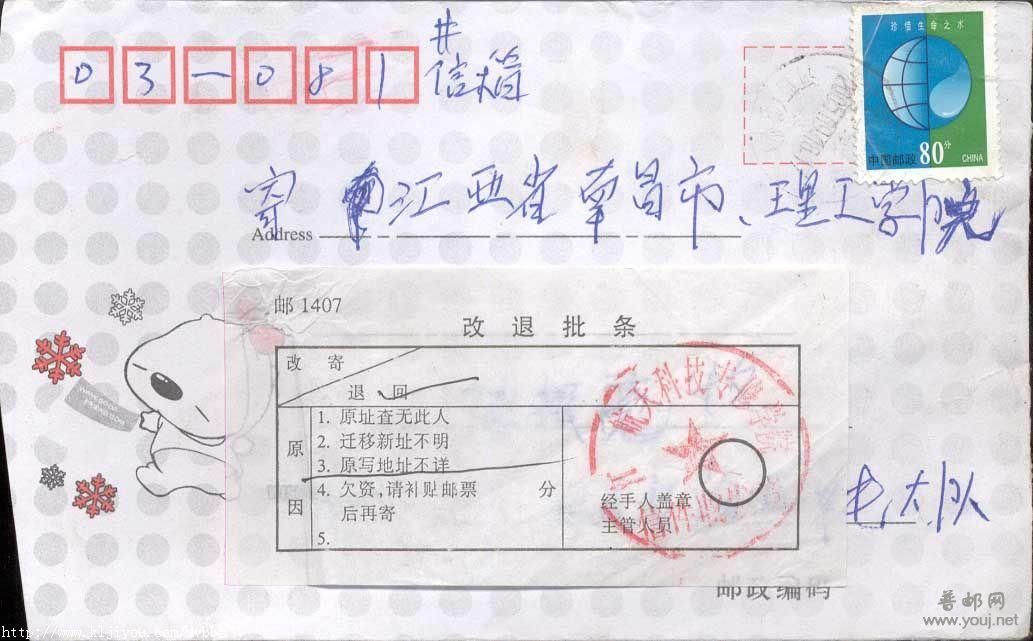 03-081
井
信箱
珍惜生命之水
中国邮政 80分 CHINA
寄 江西省南昌市、理工学院
Address
邮 1407
改退批条
改 寄
退 回
原因
1. 原址查无此人
2. 迁移新址不明
3. 原写地址不详
4. 欠资,请补贴邮票 分
后再寄
5.
经手人盖章
主管人员
大队
邮政编码
普邮网
www.youj.net